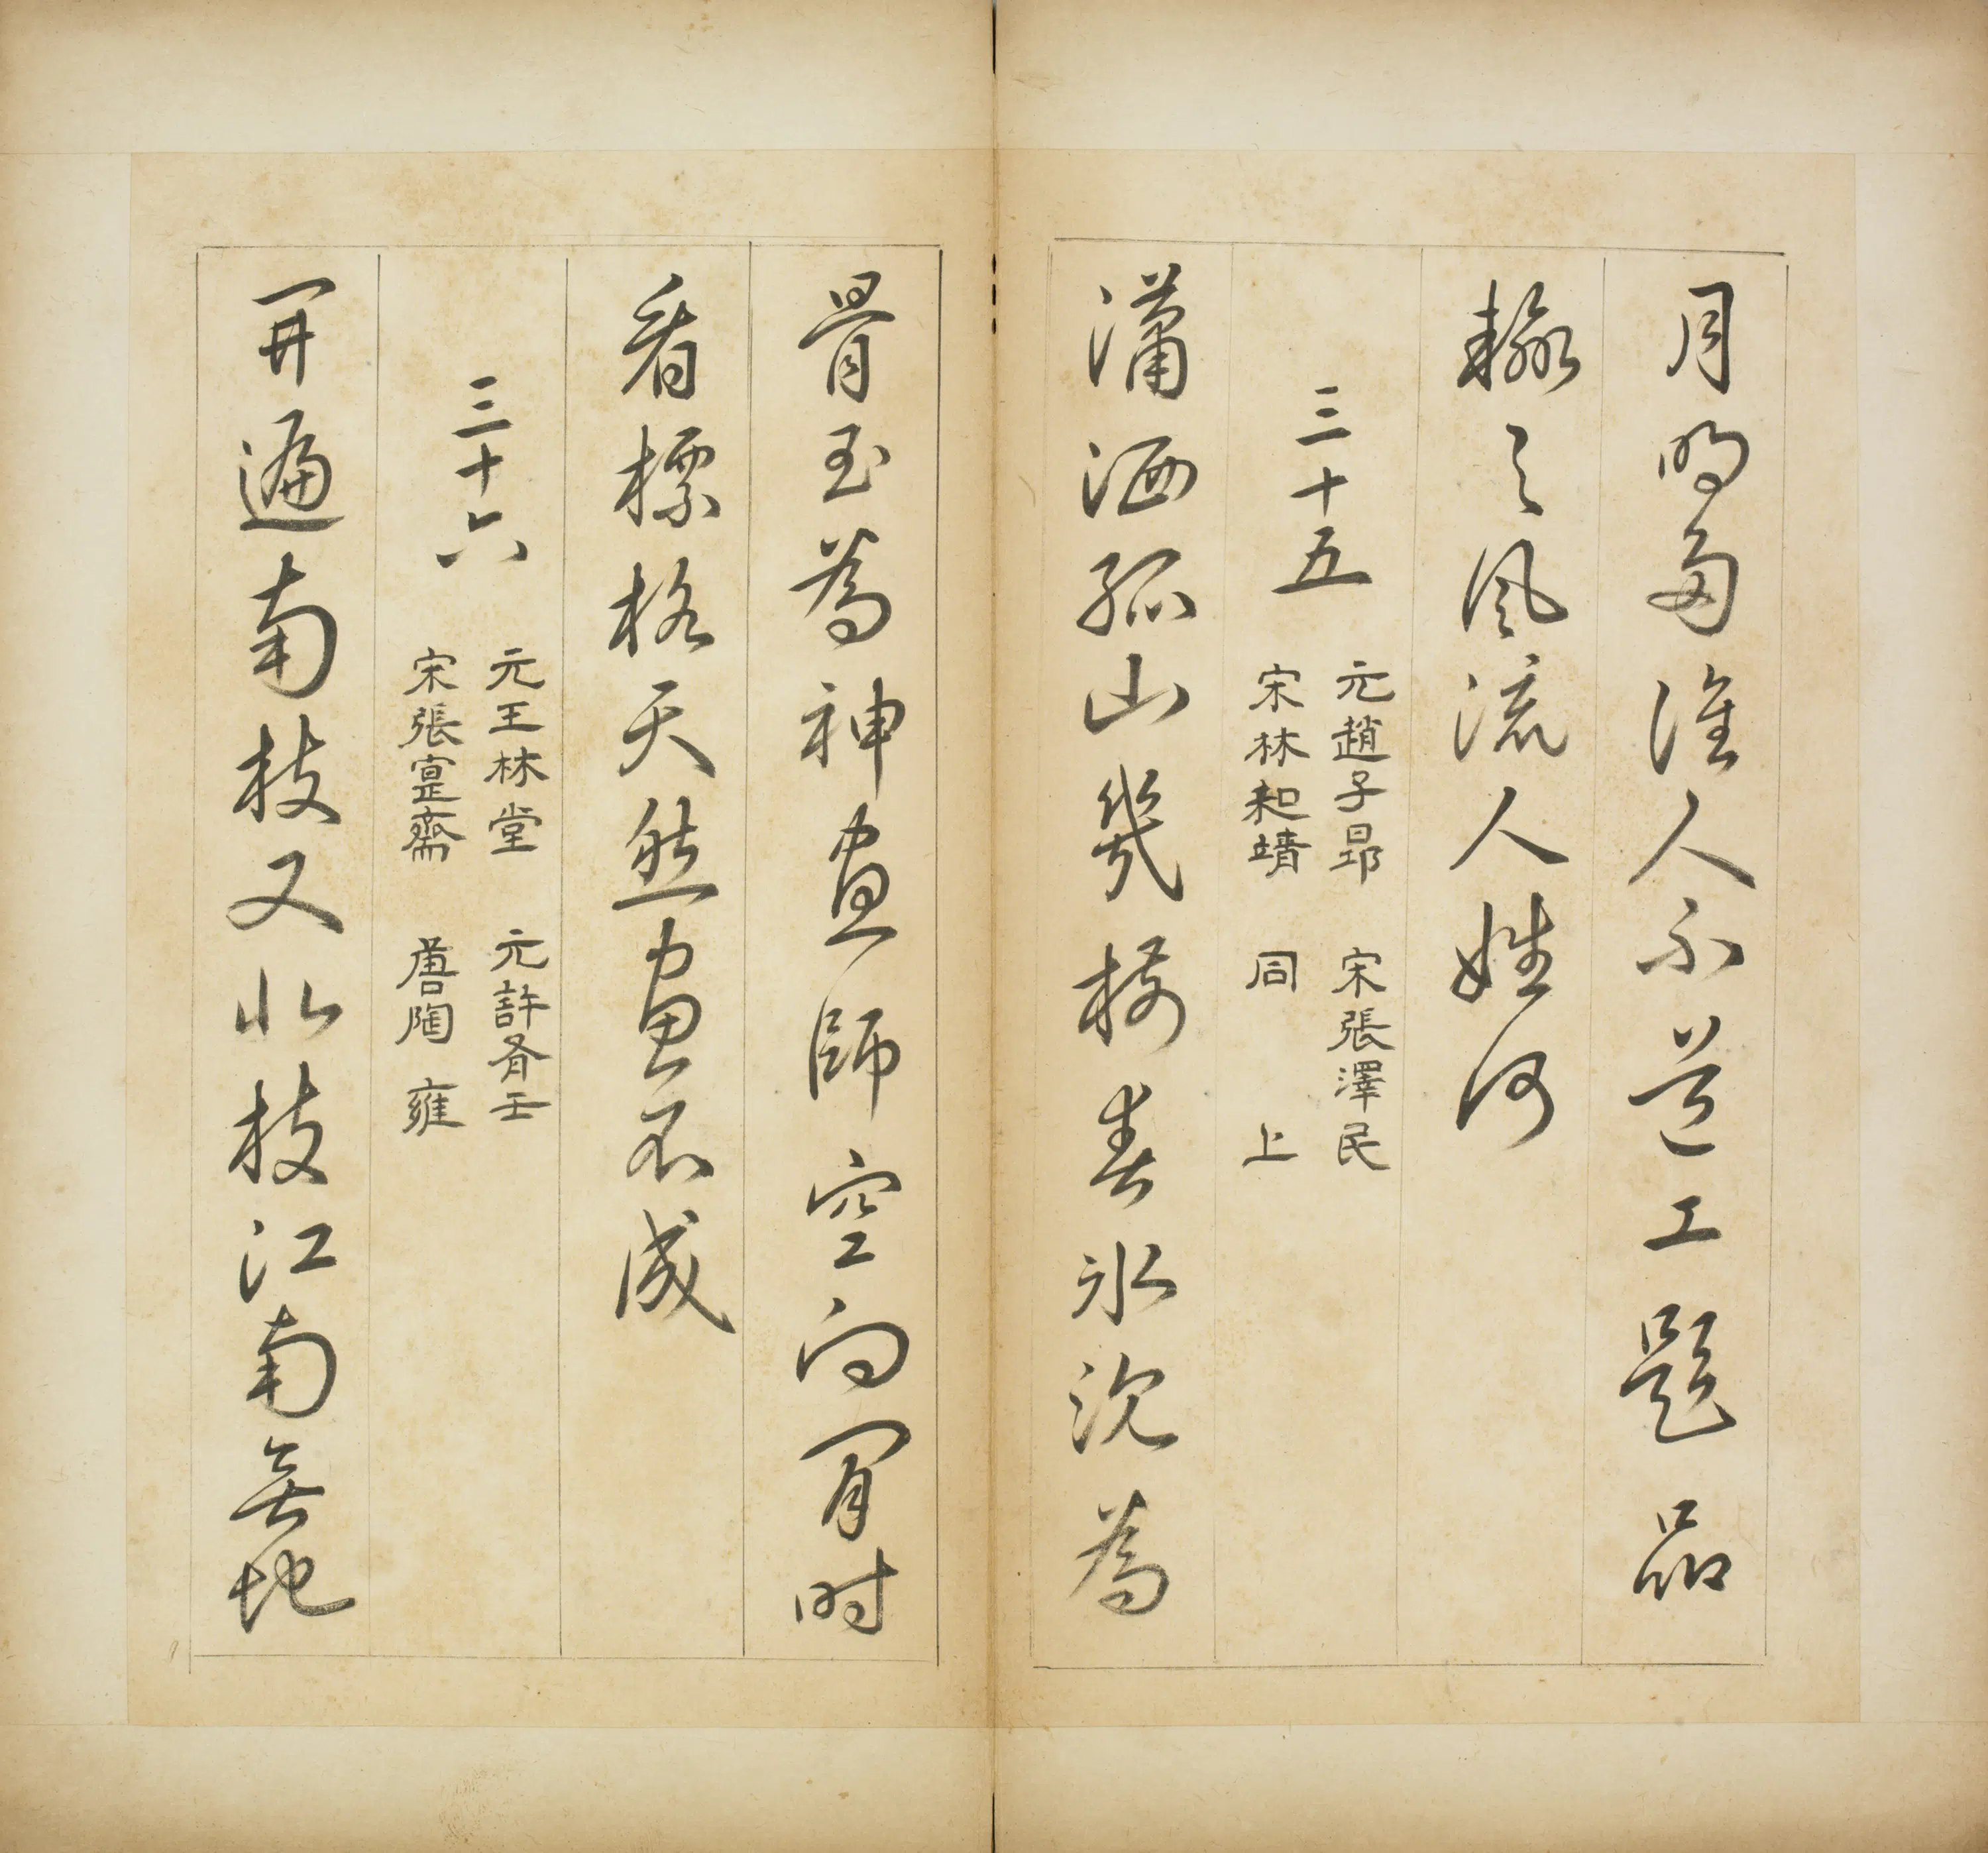 月明多誰人不道工題品
輸風流人姓何
三十五
元趙子昂 宋張澤民
宋林和靖 同上
瀟洒孤山幾樹春氷沈為
骨玉為神畫師空向閒時
看標格天然畫不成
三十六
元王林堂 元許有壬
宋張寔齋 唐陶雍
開遍南枝又北枝江南無地